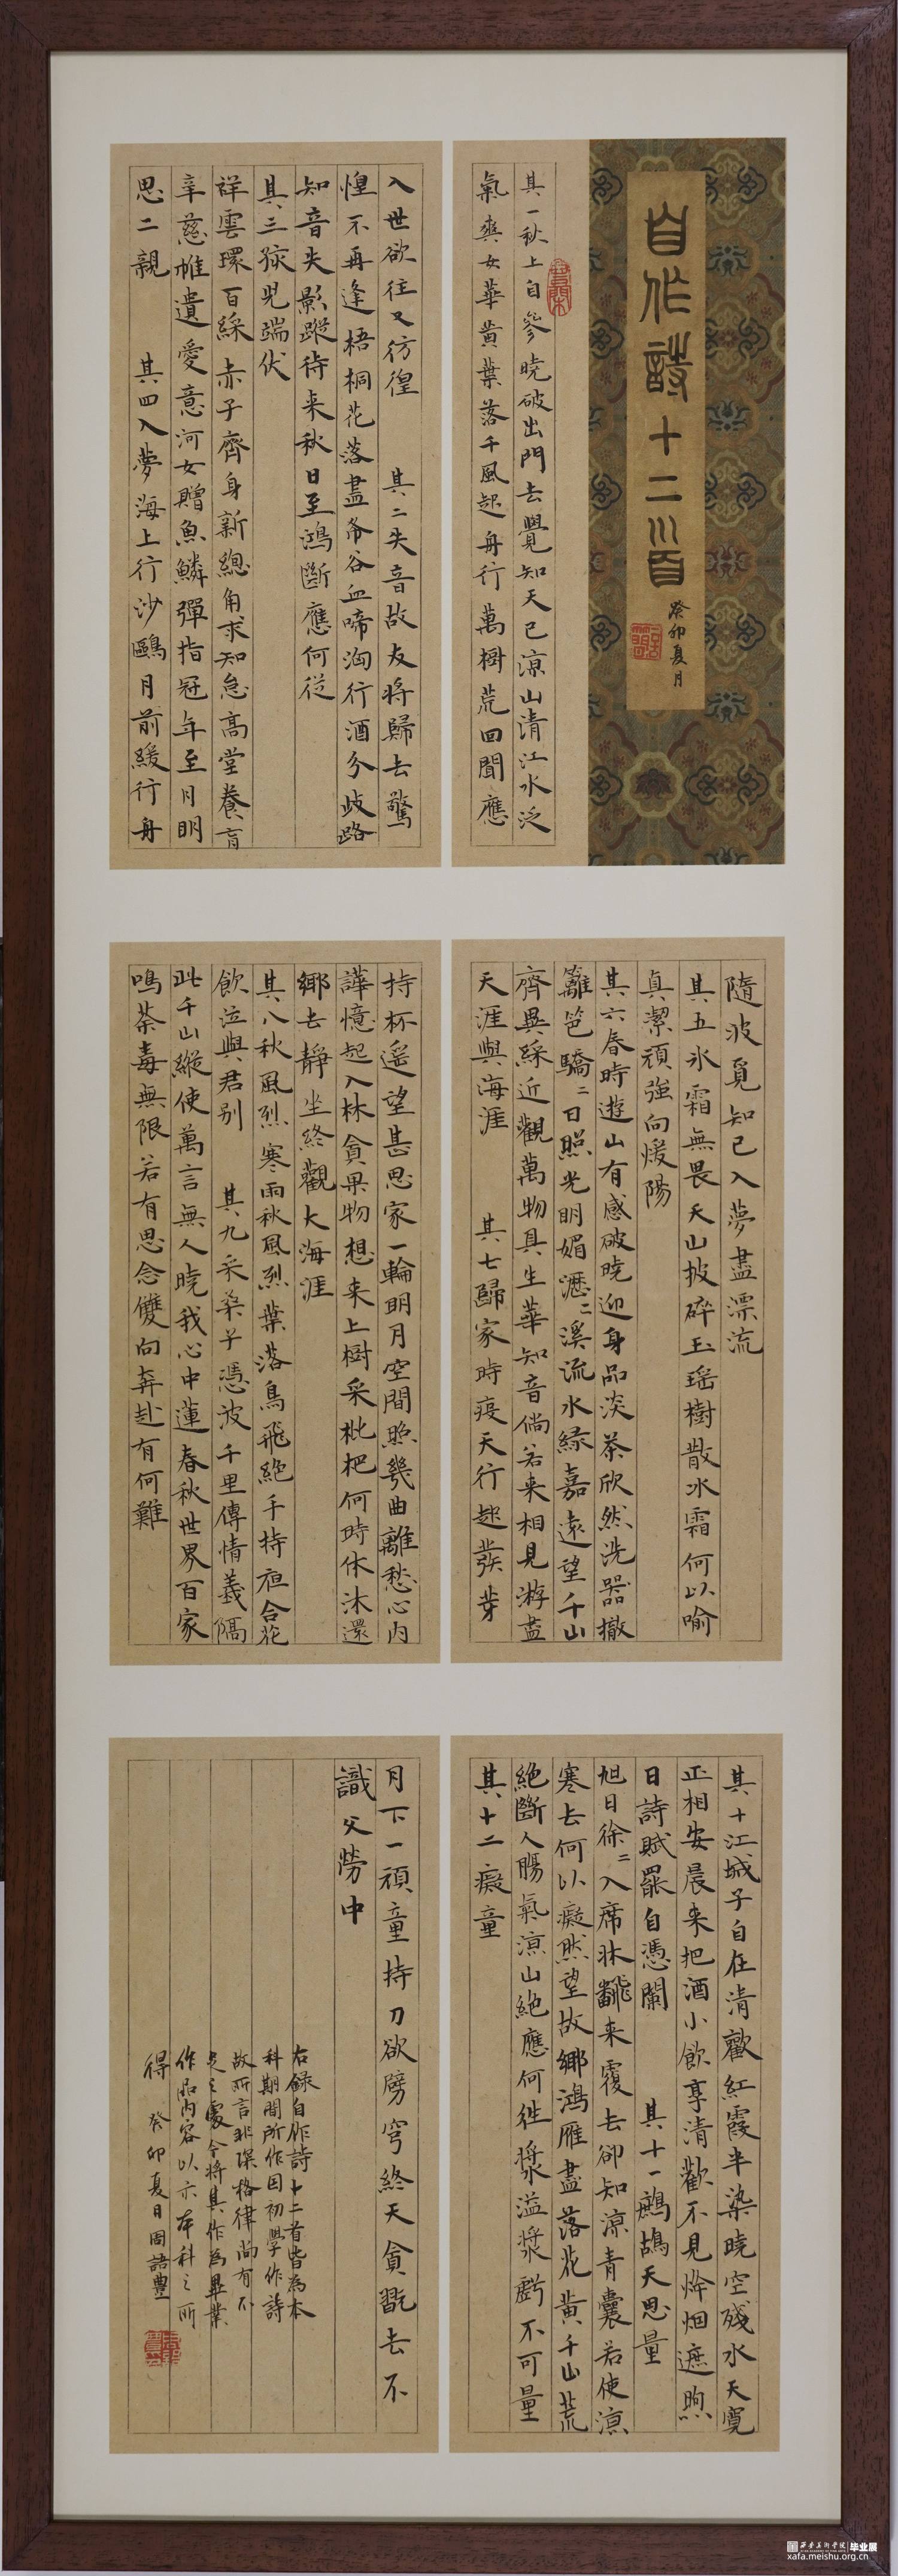 自作詩十二首
癸卯夏月
其一秋上自參曉破出門去覺知天已涼山清江水泛
氣爽女華黄葉落千風起舟行萬樹荒回聞應
入世欲往又彷徨 其二失音故友將歸去驚
惶不再逢梧桐花落盡帝谷血啼洶行酒分歧路
知音失影蹤待来秋日至鴻斷應何從
其三孩児端伏
祥雲環百綵赤子齊身新總角求知怠高堂養育
辛慈帷遺愛意河女贈魚鱗彈指冠年至月明
思二親 其四入夢海上行沙鷗月前緩行舟
隨波覓知己入夢盡漂流
其五氷霜無畏天山披碎玉瑶樹散冰霜何以喻
真潔頑強向煖陽
其六春時遊山有感破曉迎身品淡茶欣然洗器撤
籬笆驕〻日照光明媚瀝〻溪流水緑嘉遠望千山
齊異綵近觀萬物具生華知音倘若来相見游盡
天涯與海涯 其七歸家時疫天行趁發芽
持杯遥望甚思家一輪明月空間照幾曲離愁心内
譁憶起入林貪果物想来上樹采枇杷何時休沐還
鄉去靜坐終觀大海涯
其八秋風烈寒雨秋風烈葉落鳥飛絶手持百合花
飲泣與君别 其九采桑子憑波千里傳情義隔
此千山縱使萬言無人曉我心中蓮春秋世界百家
鳴荼毒無限若有思念雙向奔赴有何難
其十江城子自在清歡紅霞半染曉空殘水天寬
正相安晨来把酒小飲享清歡不見炊烟遮煦
日詩賦罷自憑闌 其十一鷓鴣天思量
旭日徐〻入席牀翻来覆去卻知涼青囊若使涼
寒去何以癡然望故鄉鴻雁盡落花黄千山荒
絶斷人腸氣涼山絶應何徃漿溢漿虧不可量
其十二癡童
月下一頑童持刀欲劈穹終天貪翫去不
識父勞中
右録自作詩十二首皆為本
科期間所作因初學作詩
故所言非深格律尚有不
足之處今將其作為畢業
作品内容以示本科之所
得 癸卯夏日周語豐
西安美術學院 毕业展
xafa.meishu.org.cn